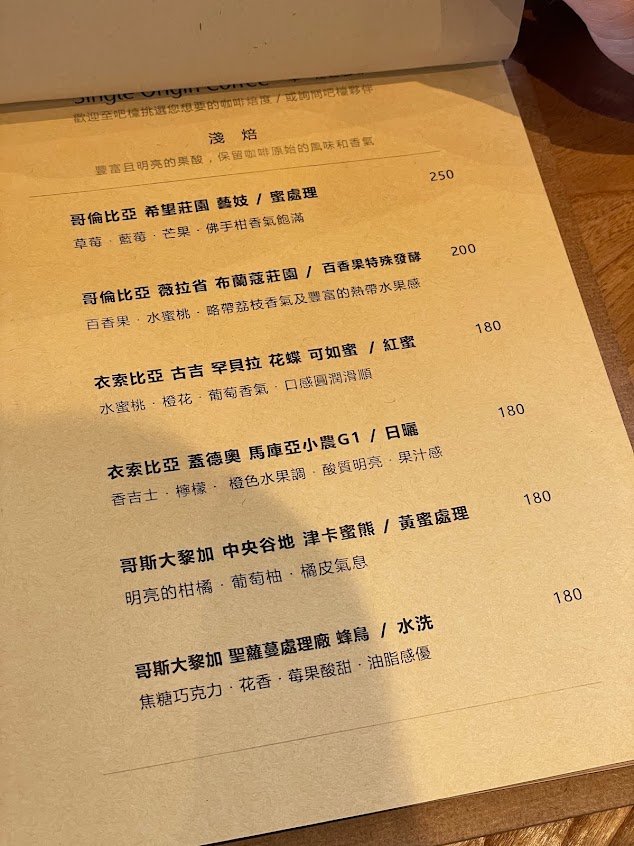 Single Origin Coffee
歡迎至吧檯挑選您想要的咖啡焙度 / 或詢問吧檯夥伴
淺 焙
豐富且明亮的果酸，保留咖啡原始的風味和香氣
哥倫比亞 希望莊園 藝妓 / 蜜處理 250
草莓 · 藍莓 · 芒果 · 佛手柑香氣飽滿
哥倫比亞 薇拉省 布蘭蔻莊園 / 百香果特殊發酵 200
百香果 · 水蜜桃 · 略帶荔枝香氣及豐富的熱帶水果感
衣索比亞 古吉 罕貝拉 花蝶 可如蜜 / 紅蜜 180
水蜜桃 · 橙花 · 葡萄香氣 · 口感圓潤滑順
衣索比亞 蓋德奧 馬庫亞小農G1 / 日曬 180
香吉士 · 檸檬 · 橙色水果調 · 酸質明亮 · 果汁感
哥斯大黎加 中央谷地 津卡蜜熊 / 黃蜜處理 180
明亮的柑橘 · 葡萄柚 · 橘皮氣息
哥斯大黎加 聖蘿蔓處理廠 蜂鳥 / 水洗 180
焦糖巧克力 · 花香 · 莓果酸甜 · 油脂感優